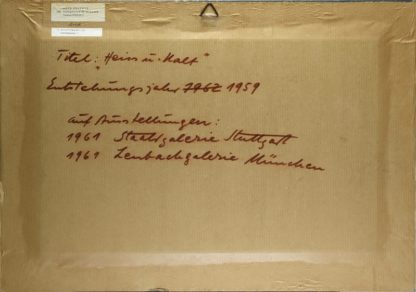 Titel: "Heiss u. Kalt"
Entstehungsjahr 1962 1959
auf Ausstellungen:
1961 Staatsgalerie Stuttgart
1961 Lenbachgalerie München